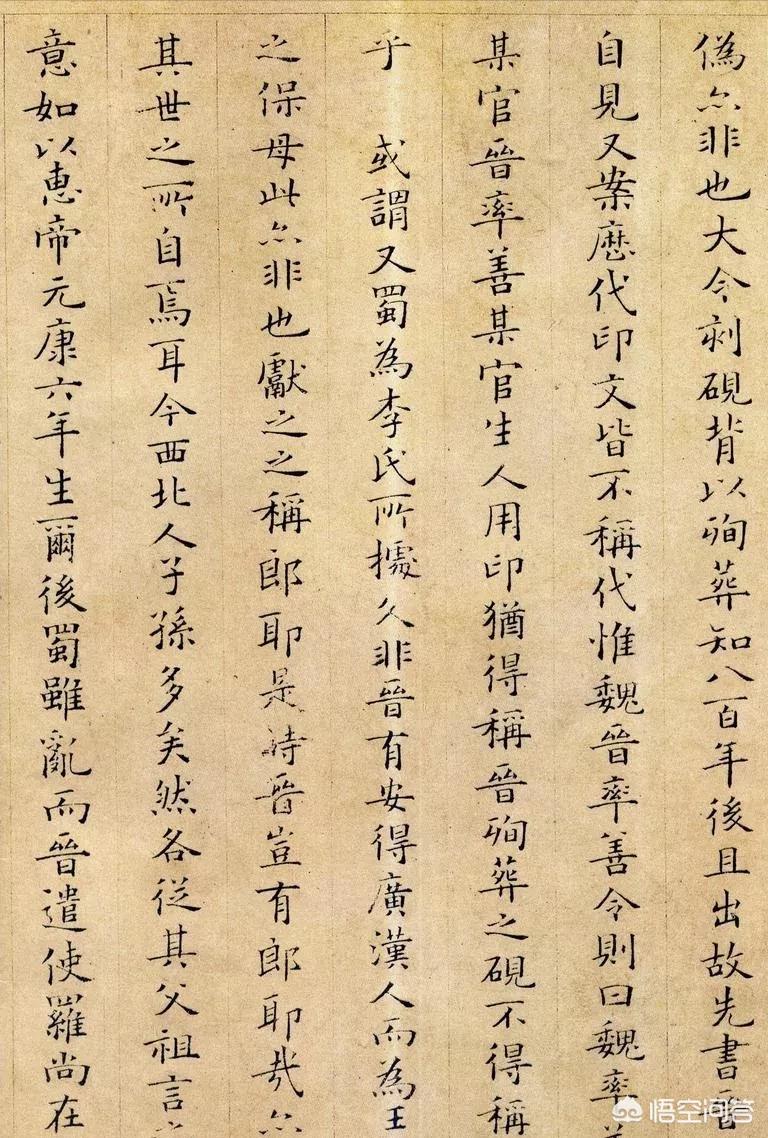 偽亦非也大令刻硯背以殉葬知八百年後且出故先書晉
自見又案歷代印文皆不稱代惟魏晉率善令則曰魏率
某官晉率善某官生人用印猶得稱晉殉葬之硯不得稱
乎 或謂又蜀為李氏所據久非晉有安得廣漢人而為王
之保母此亦非也獻之之稱郎耶是時晉豈有郎耶哉亦
其世之所自焉耳今西北人子孫多矣然各從其父祖言
意如以惠帝元康六年生爾後蜀雖亂而晉遣使羅尚在
悟空问答